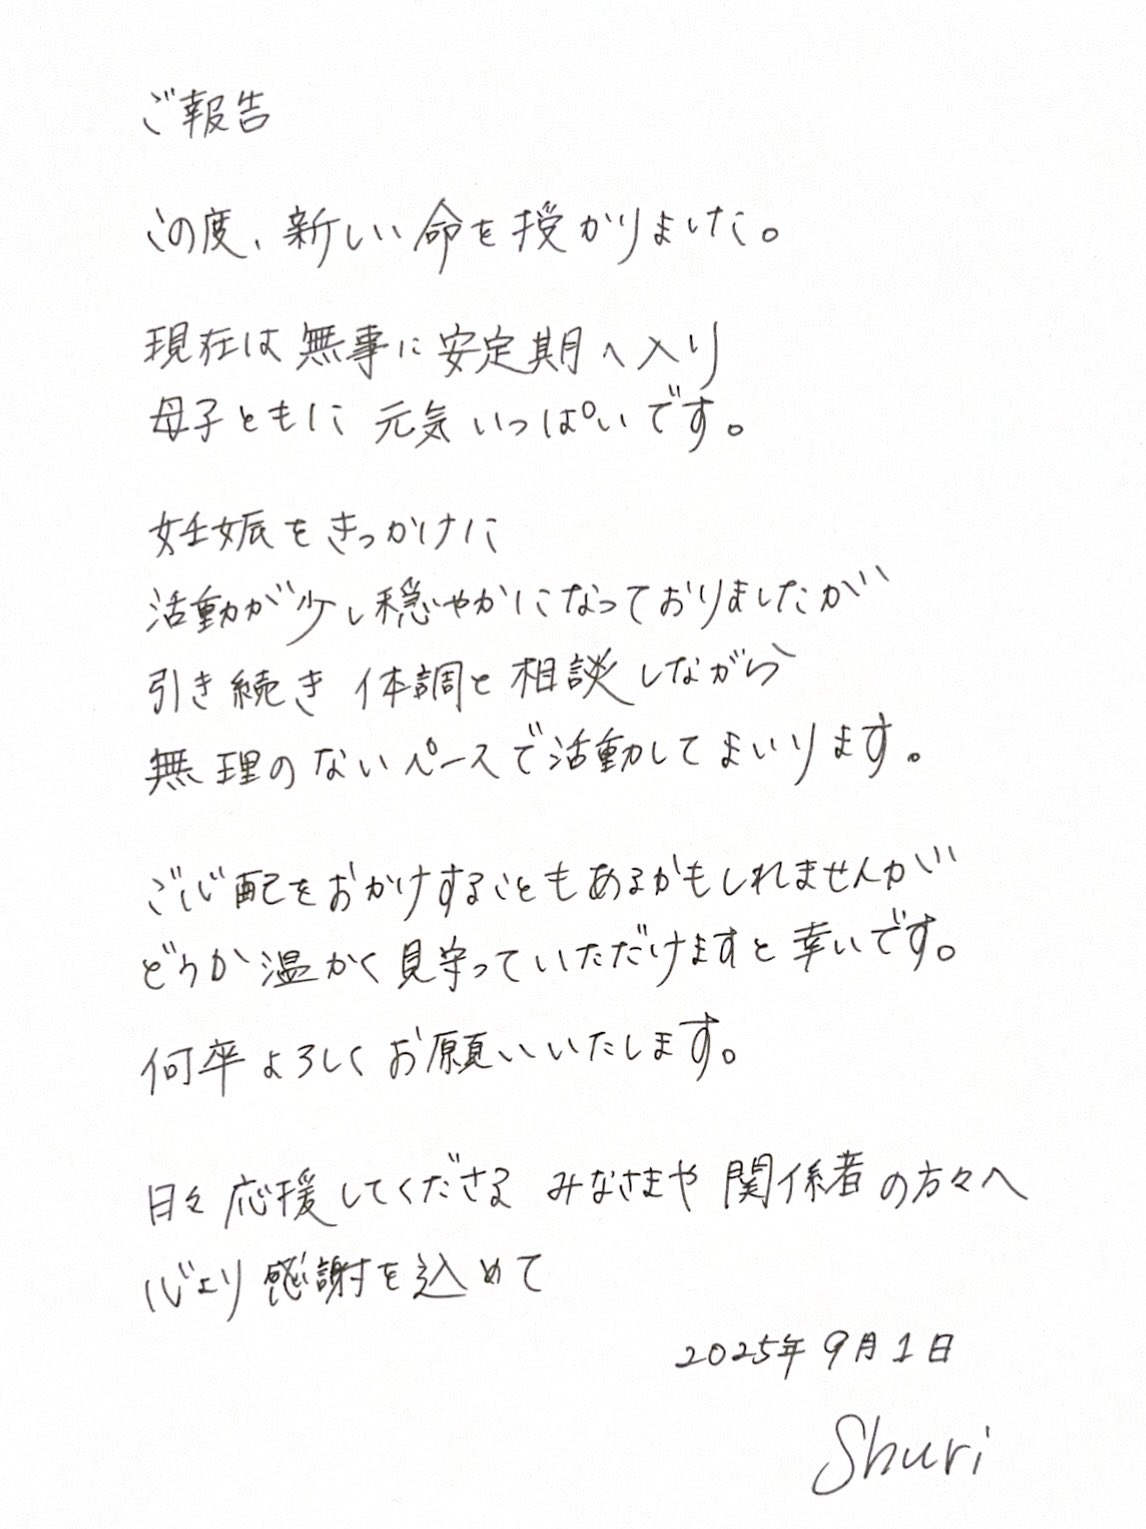 ご報告
この度、新しい命を授かりました。
現在は無事に安定期へ入り
母子ともに元気いっぱいです。
妊娠をきっかけに
活動が少し穏やかになっておりましたが
引き続き体調と相談しながら
無理のないペースで活動してまいります。
ご心配をおかけすることもあるかもしれませんが
どうか温かく見守っていただけますと幸いです。
何卒よろしくお願いいたします。
日々応援してくださる みなさまや関係者の方々へ
心より感謝を込めて
2025年9月1日
Shuri